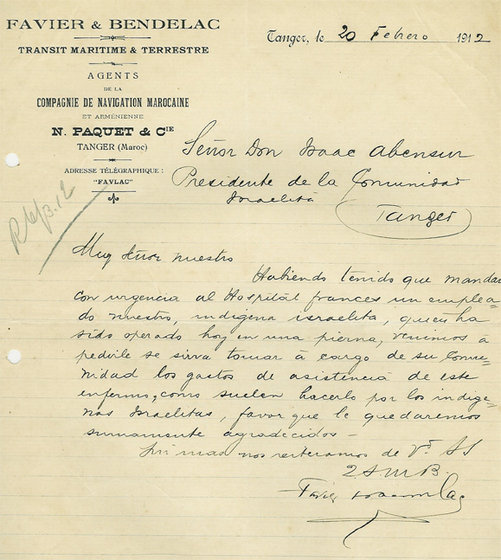 FAVIER & BENDELAC
TRANSIT MARITIME & TERRESTRE
AGENTS
DE LA
COMPAGNIE DE NAVIGATION MAROCAINE
ET ARMÉNIENNE
N. PAQUET & CIE
TANGER (Maroc)
ADRESSE TÉLÉGRAPHIQUE :
"FAVLAC"
Tanger, le 20 Febrero 1912
R 6/3.12
Señor Don Isaac Abensur
Presidente de la Comunidad
Israelita
(Tanger)
Muy Señor nuestro
Habiendo tenido que mandar
con urgencia al Hospital frances un emplea-
do nuestro, indigena israelita, quien ha
sido operado hoy en una pierna, venimos a
pedirle se sirva tomar á cargo de su Comu-
nidad los gastos de asistencia de este
enfermo, como suelen hacerlo por los indige-
nas Israelitas, favor que le quedaremos
sumamente agradecidos –
nos reiteramos de Vd. SS
Q S M B.